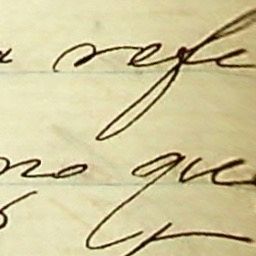 a refe
no que